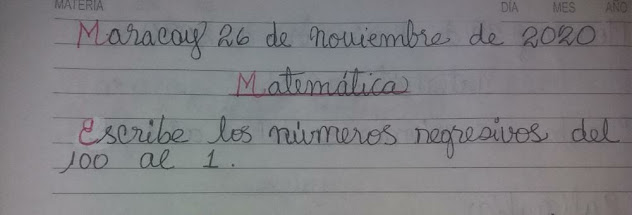 MATERIA DIA MES AÑO
Maracay 26 de noviembre de 2020
Matemática
Escribe los números negresivos del
100 al 1.